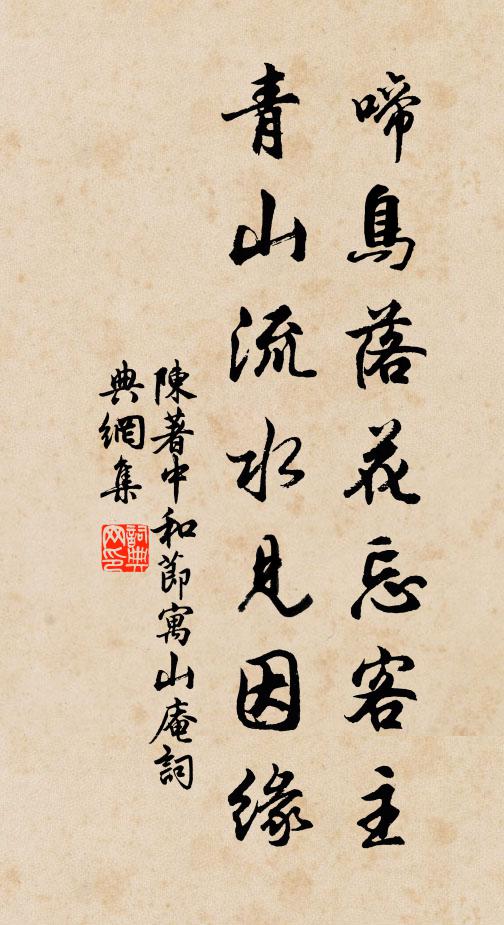 啼鳥落花忘客主
青山流水見因緣
陳著中和節寓山庵詞
典網集
詞典网印